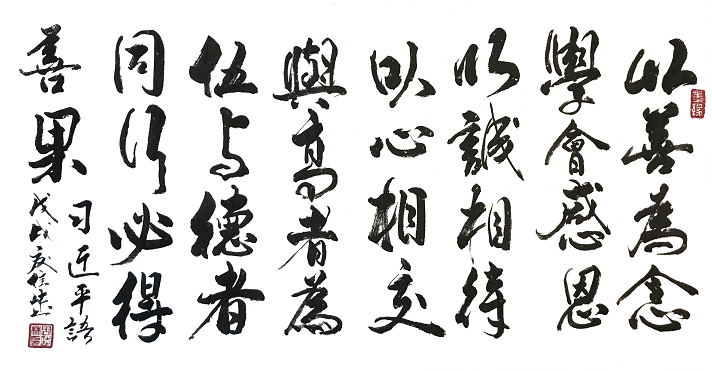 以善為念
學會感恩
以誠相待
以心相交
與高者為
伍与德者
同行必得
善果
习近平語
戊戌